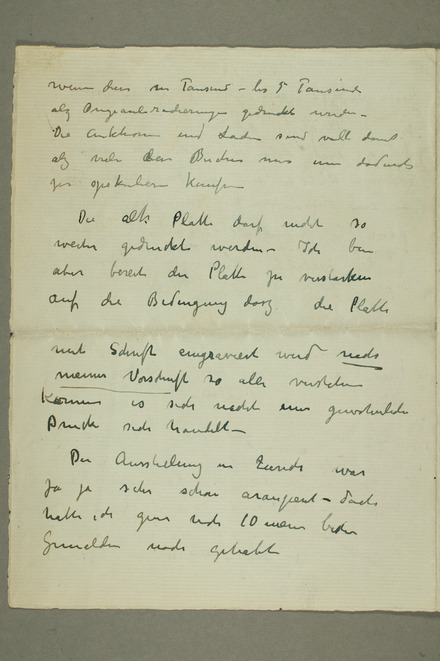 wenn dies in Tausend – bis 5 Tausende
als Originalradierungen gedruckt werden –
Die Auktionen und Laden sind voll damit
als viele der nur um dadurch
zu spekulieren Kaufen
Die alte Platte darf nicht so
weiter gedruckt werden – Ich bin
aber bereit die Platte zu verstarken
auf die Bedingung das die Platte
mit Schrift eingraviert wird nach
meiner Vorschrift so alle verstehen
Können es sich nicht um gewohnliche
Drucke sich handelt –
Die Ausstelung in Zurich war
ja ja sehr schon arangiert – doch
hatte ich gern noch 10 meine
Gemalden noch gehabt